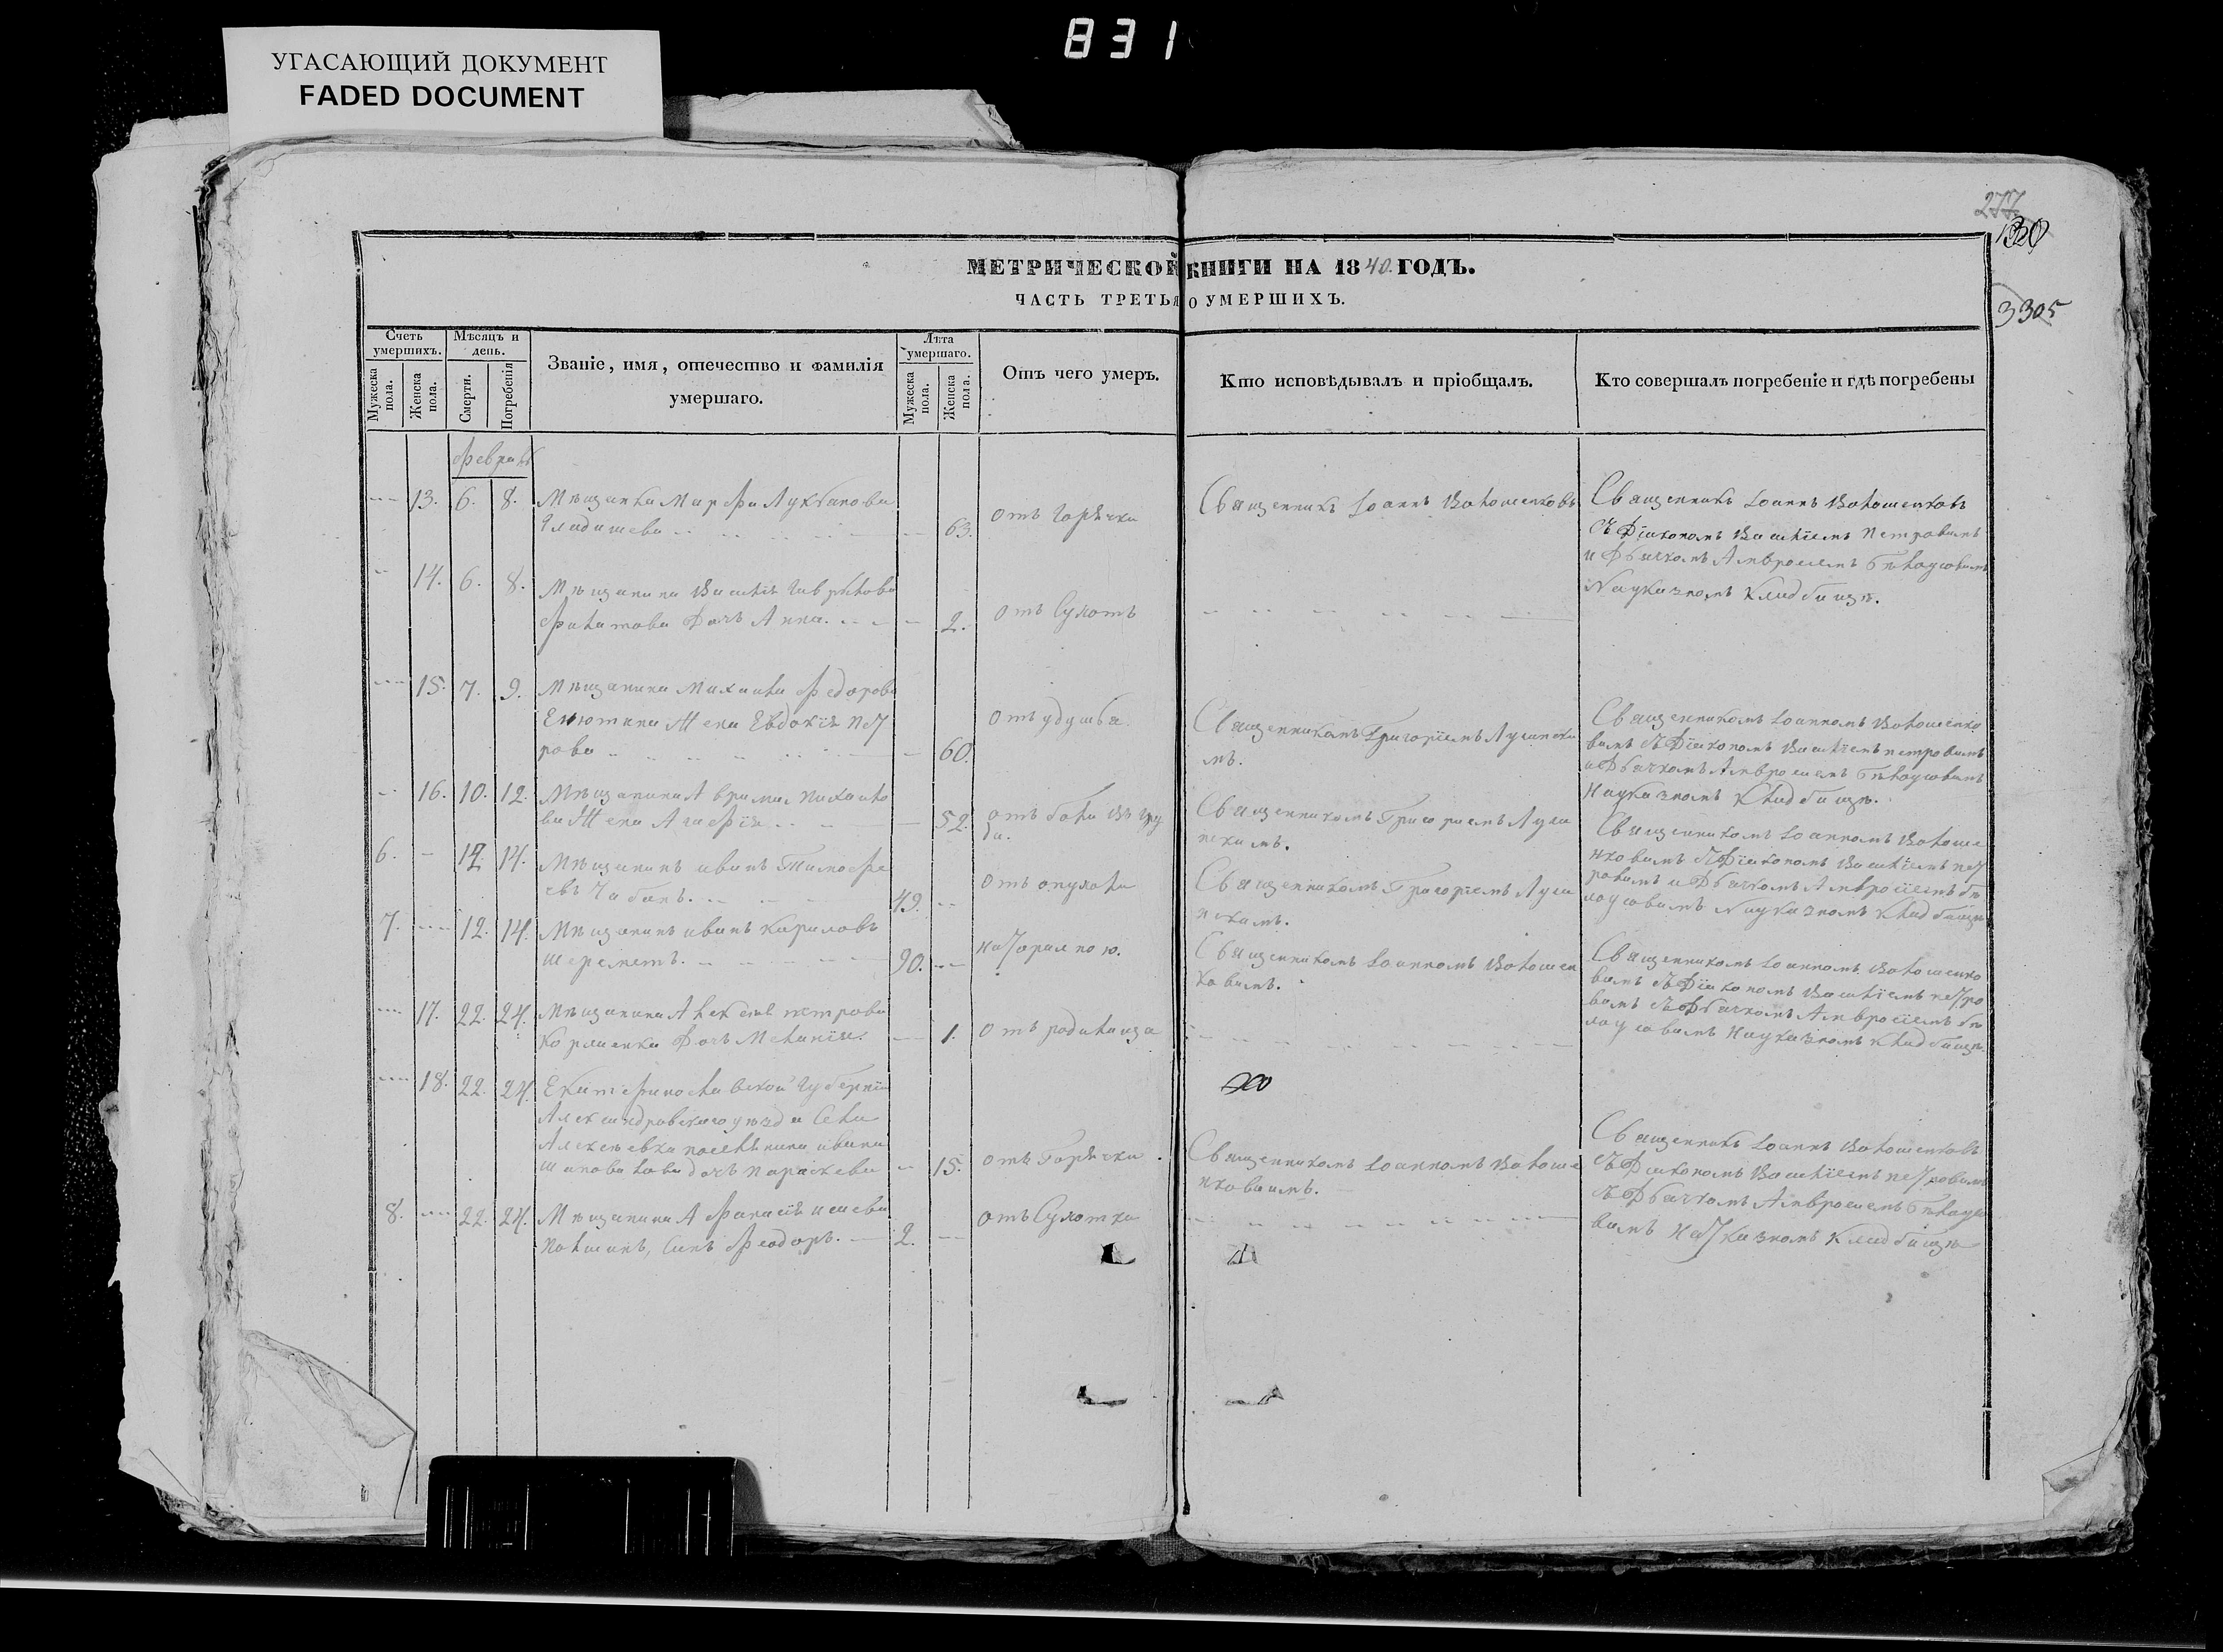 831
УГАСАЮЩИЙ ДОКУМЕНТ
FADED DOCUMENT
277
130
3305
МЕТРИЧЕСКОЙ КНИГИ НА 1840. ГОДЪ.
ЧАСТЬ ТРЕТЬЯ О УМЕРШИХЪ.
Счетъ умершихъ.
Мужеска пола.
Женска пола.
Мѣсяцъ и день.
Смерти.
Погребенія
Званіе, имя, отечество и фамилія
умершаго.
Лѣта умершаго.
Мужеска пола.
Женска пола.
Отъ чего умеръ.
Кто исповѣдывалъ и пріобщалъ.
Кто совершалъ погребеніе и гдѣ погребены
Февраль
13. 6. 8. Мѣщанка Марфа
Гладишева 63. отъ горячки
Священникъ Іоаннъ Волошенковъ
Священникъ Іоаннъ Волошенковъ
съ Діакономъ Василіемъ Петровымъ
и Дьячкомъ Амвросіемъ Бѣлоусовымъ
14. 6. 8. Мѣщанина Василія Гаврилова
Филатова Дочь Анна. 2. отъ Сухотъ
15. 7. 9. Мѣщанина Михаила Федорова
Жена Евдокія Пет
рова 60. отъ удушья
Священникомъ Григоріемъ
мъ.
Священникомъ Іоанномъ Волошенко
вымъ съ Діакономъ Василіемъ Петровымъ
и Дьячкомъ Амвросіемъ Бѣлоусовымъ
16. 10. 12. Мѣщанина
ва Жена Агафія 52. отъ боли въ гру
ди.
Священникомъ Григоріемъ
Священникомъ Іоанномъ Волоше
нковымъ съ Діакономъ Василіемъ Пет
ровымъ и Дьячкомъ Амвросіемъ Бѣ
лоусовымъ
6. 12. 14. Мѣщанинъ Иванъ Тимофе
евъ Чабанъ. 49. отъ опухоли
Священникомъ Григоріемъ
7. 12. 14. Мѣщанинъ Иванъ Кириловъ
Шереметъ. 90. натуралною.
Священникомъ Іоанномъ Волошен
ковымъ.
Священникомъ Іоанномъ Волошенко
вымъ съ Діакономъ Василіемъ Петро
вымъ съ Дьячкомъ Амвросіемъ Бѣ
лоусовымъ
17. 22. 24. Мѣщанина Алексея Петрова
Корниенка Дочь Меланія. 1. отъ родимца
18. 22. 24. Екатеринославской Губерніи
Александровскаго уѣзда Села
Алексеевки поселянина Ивана
Шаповалова дочь Параскева 15. отъ Горячки.
Священникомъ Іоанномъ Волоше
нковымъ.
Священникъ Іоаннъ Волошенковъ
съ Діакономъ Василіемъ Петровымъ
съ Дьячкомъ Амвросіемъ Бѣлоусо
вымъ
8. 22. 24. Мѣщанина Афанасія
Сынъ Феодоръ. 2. отъ Сухотки